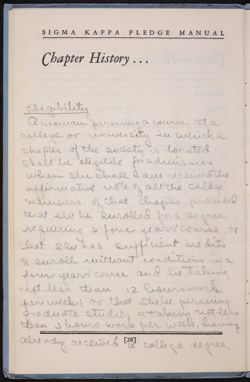 SIGMA KAPPA PLEDGE MANUAL
Chapter History . . .
Eligibility
A woman pursuing a course at a
college or university in which a
chapter of the society is located
shall be eligible for admission
when she shall have received the
affirmative vote of all the college
members of that chapter, provided
that she be enrolled for a degree
requiring a four years' course, or
that she has sufficient credits
to enroll without conditions in a
four years' course and be taking
not less than 12 hours work
per week; or that she be pursuing
graduate studies & taking not less
than 3 hours work per week, having
already received a college degree.
[28]